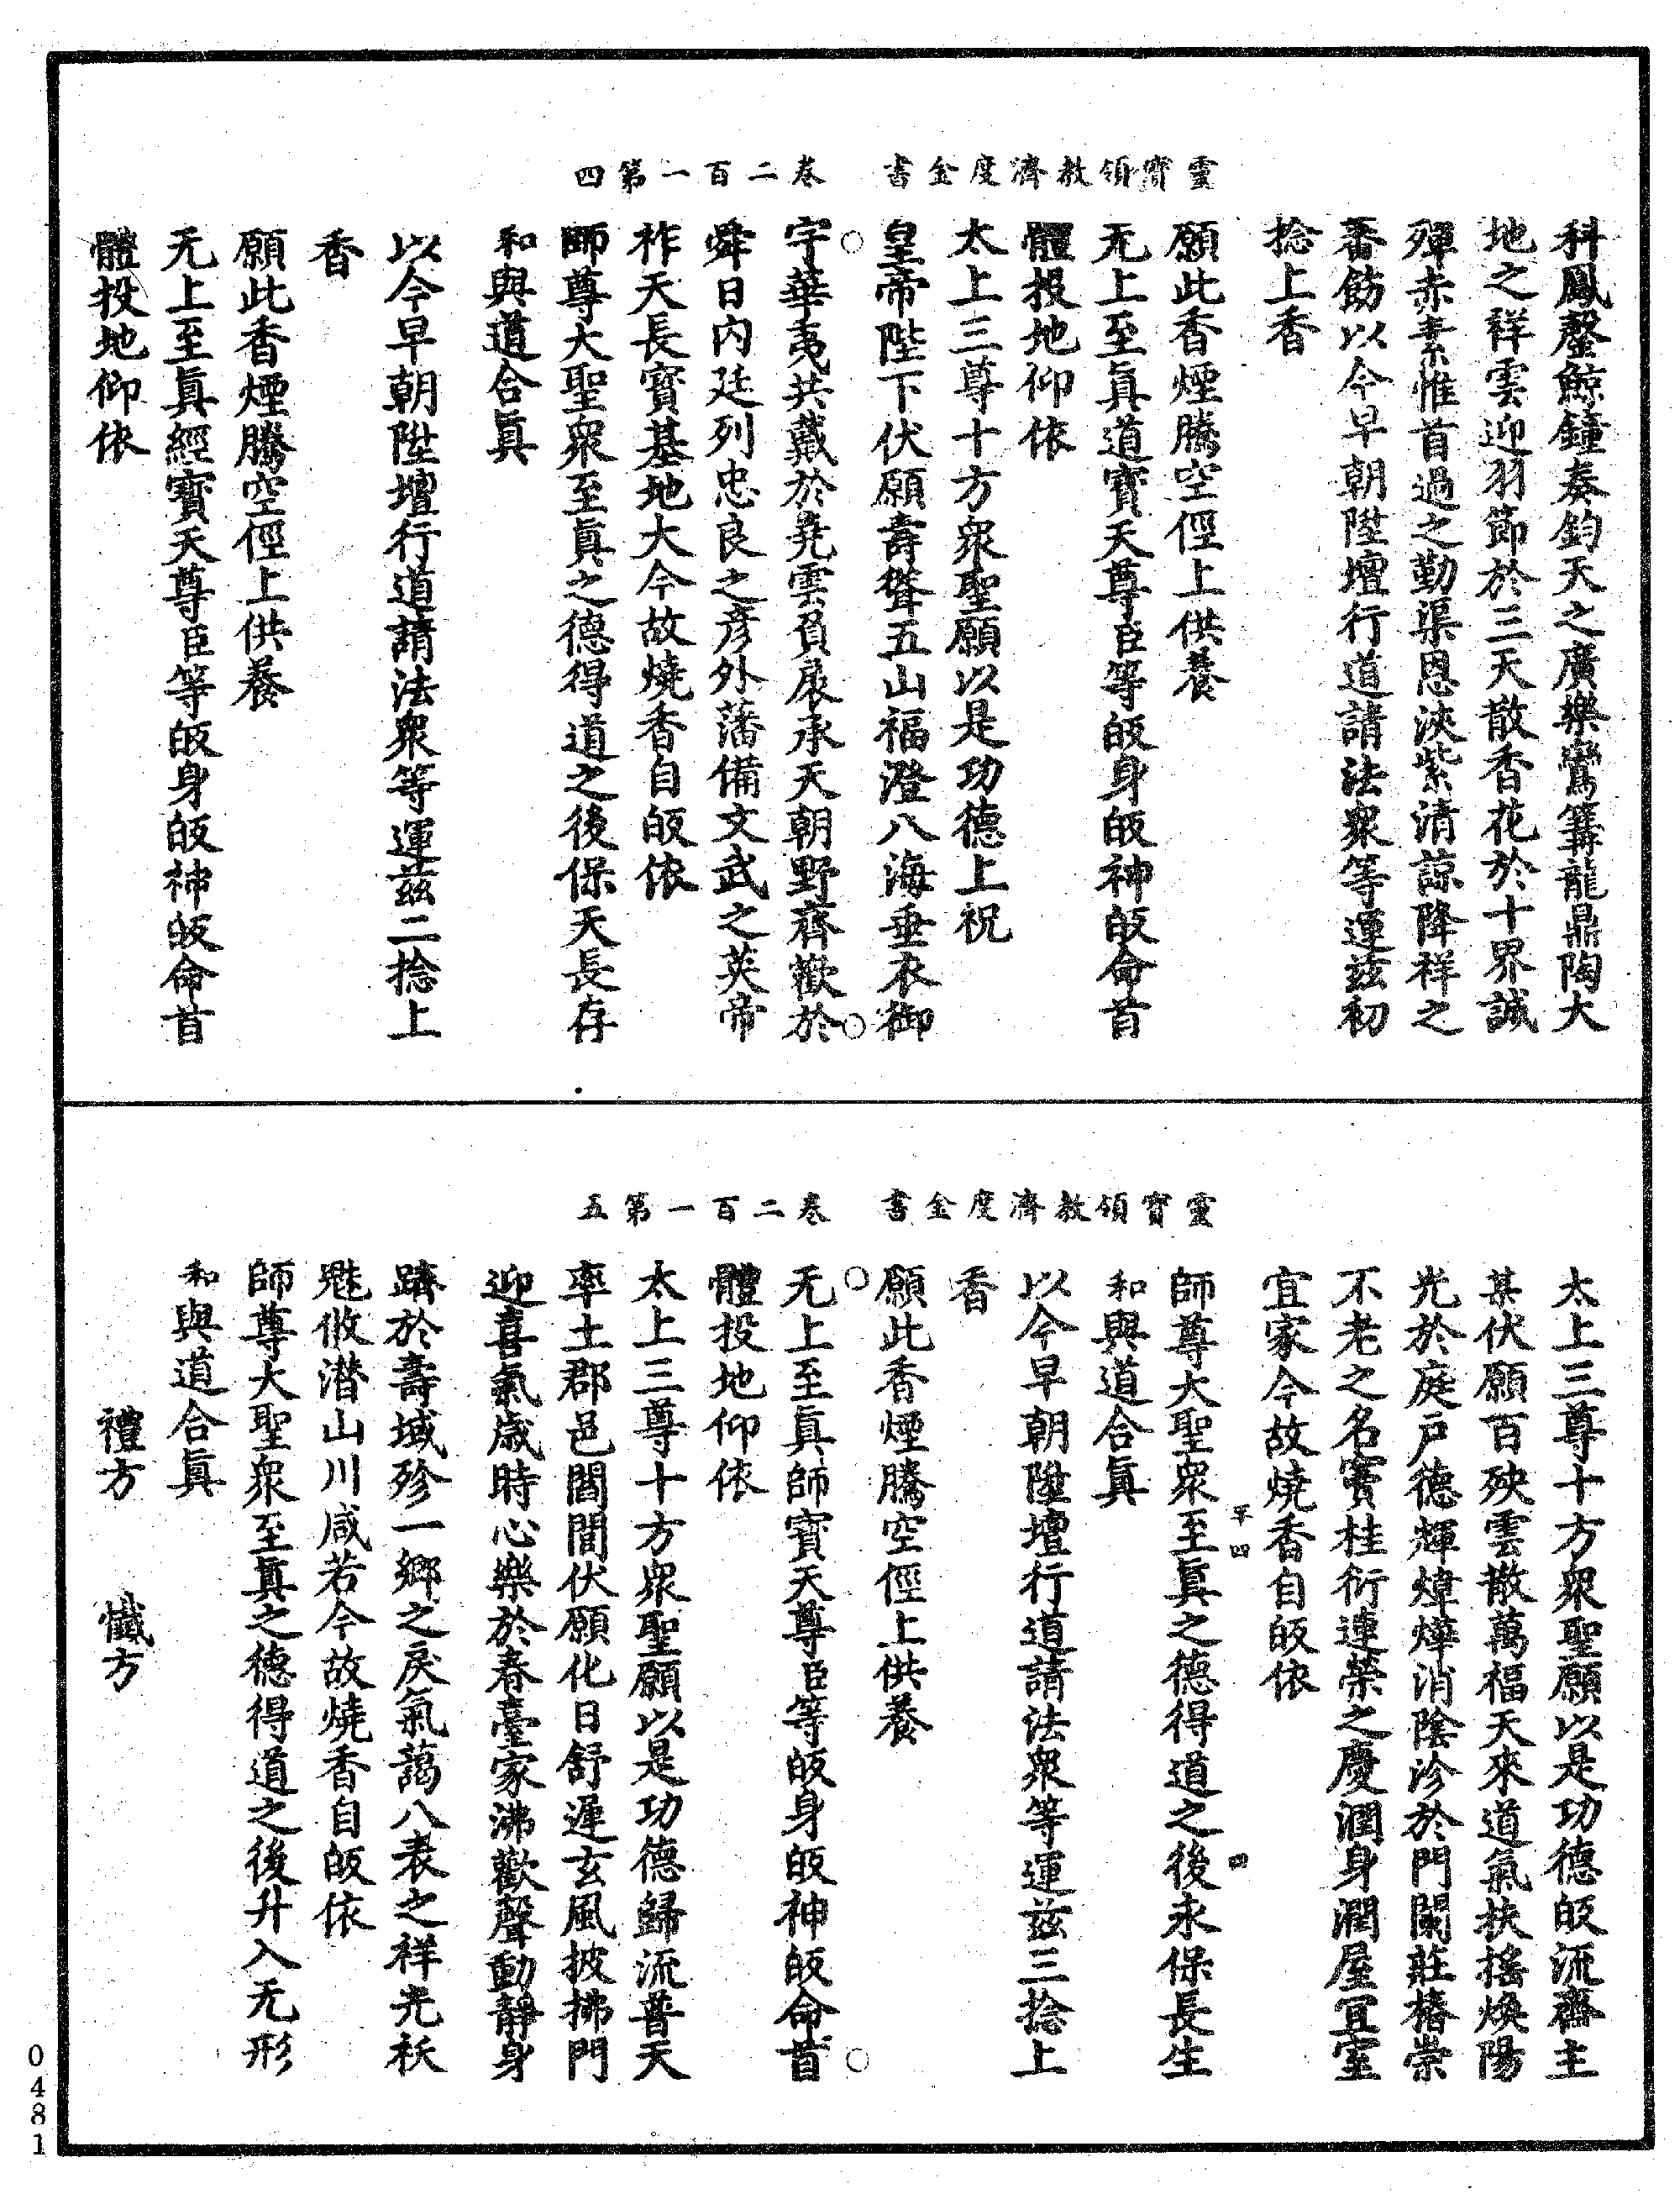 靈寶領教濟度金書　卷二百一第四
科鳳罄鯨鐘奏鈞天之廣樂鸞篝龍鼎陶大
地之祥雲迎羽節於三天散香花於十界誠
殫赤素惟首過之勤渠恩浹紫清諒降祥之
番飭以今早朝陞壇行道請法衆等運兹初
捻上香
願此香煙騰空徑上供養
无上至眞道寶天尊臣等皈身皈神皈命首
體投地仰依
太上三尊十方衆聖願以是功德上祝
皇帝陛下伏願壽聳五山福澄八海垂衣御
宇華夷共戴於堯雲負扆承天朝野齊歡於
舜日内廷列忠良之彥外藩備文武之英帝
祚天長寶基地大今故燒香自皈依
師尊大聖衆至眞之德得道之後保天長存
和與道合眞
以今早朝陞壇行道請法衆等運兹二捻上
香
願此香煙騰空徑上供養
无上至眞經寶天尊臣等皈身皈神皈命首
體投地仰依
靈寶領教濟度金書　卷二百一第五
太上三尊十方衆聖願以是功德皈流齋主
某伏願百殃雲散萬福天來道氣扶搖煥陽
光於庭戶德輝煒燁消陰沴於門闌莊椿崇
不老之名竇桂衍連榮之慶潤身潤屋宜室
宜家今故燒香自皈依
苹四　四
師尊大聖衆至眞之德得道之後永保長生
和與道合眞
以今早朝陞壇行道請法衆等運兹三捻上
香
願此香煙騰空徑上供養
无上至眞師寶天尊臣等皈身皈神皈命首
體投地仰依
太上三尊十方衆聖願以是功德歸流普天
率土郡邑閭閻伏願化日舒遲玄風披拂門
迎喜氣歲時心樂於春臺家沸歡聲動靜身
躋於壽域殄一鄉之戾氣藹八表之祥光袄
魃攸潛山川咸若今故燒香自皈依
師尊大聖衆至眞之德得道之後升入无形
和與道合眞
禮方　懺方
0481